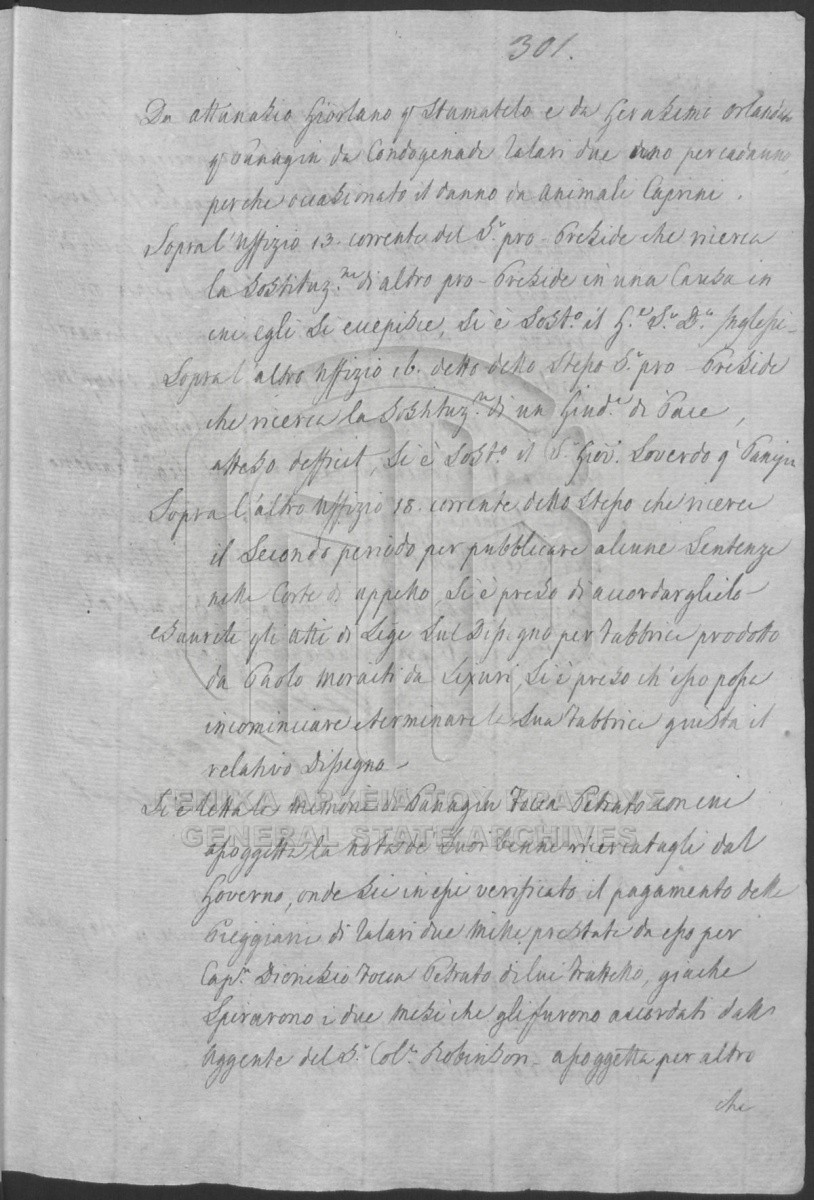 301.
Da Attanasio Giorlano q.m Stamatelo e da Gerasimo Orlandato
q.m Panagin da Condogenada Talari due uno per cadauno,
perche occasionato il danno da animali Caprini.
Sopra l'Uffizio 13. corrente del S.r pro-Preside che ricerca
la Sostituz.ne di altro pro-Preside in una Causa in
cui egli si eccepisce, si è Sost.o il G.e S.r D.r Inglessi-
Sopra l'altro Uffizio 16. detto dello Stesso S.r pro-Preside
che ricerca la Sostituz.ne di un Giud.e di Pace,
atteso defficit, si è Sost.o il S.r Giov. Loverdo q.m Panajin
Sopra l'altro Uffizio 18. corrente dello Stesso che ricerca
il Secondo periodo per pubblicare alcune Sentenze
nella Corte di appello, Si è preso di accordarglielo-
esaurite gli atti di Lege Sul Dissegno per Fabbrica prodotto
da Paolo Moraiti da Lixuri, Si è preso ch'esso possa
incominciare e terminare la Sua Fabbrica giusta il
relativo Dissegno-
Si è letta la memoria di Panagin Tocca Petrato con cui
ΓΕΝΙΚΑ ΑΡΧΕΙΑ ΤΟΥ ΚΡΑΤΟΥΣ
GENERAL STATE ARCHIVES
apoggetta la nota de Suoi benni ricercatagli dal
Governo, onde Sii in essi verificato il pagamento delle
Pieggiarie di Talari due mille prestate da esso per
Cap.n Dionisio Tocca Petrato di lui Frattello, giache
Spirarono i due mesi che gli furono accordati dall'
Aggente del S.r Col.o Robinson- apoggetta per altro
che